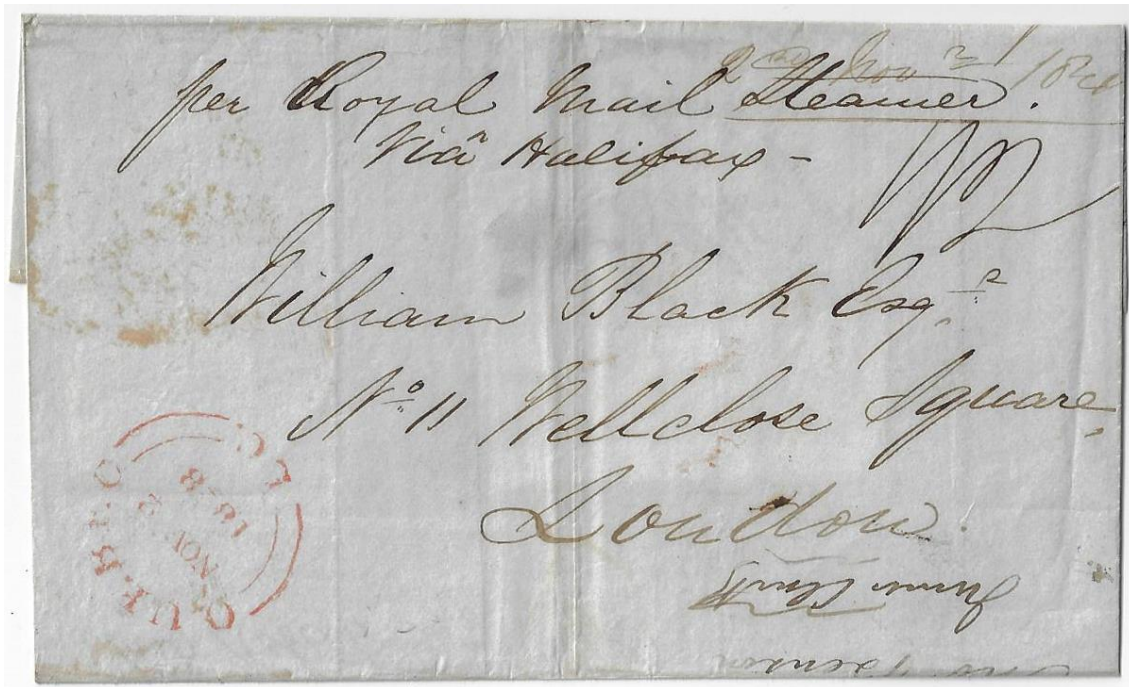 2nd Nov
per Royal Mail Steamer.
Viâ Halifax -
1/2
William Black Esqr
No 11 Wellclose Square,
London.
QUEBEC L.C.
NOV